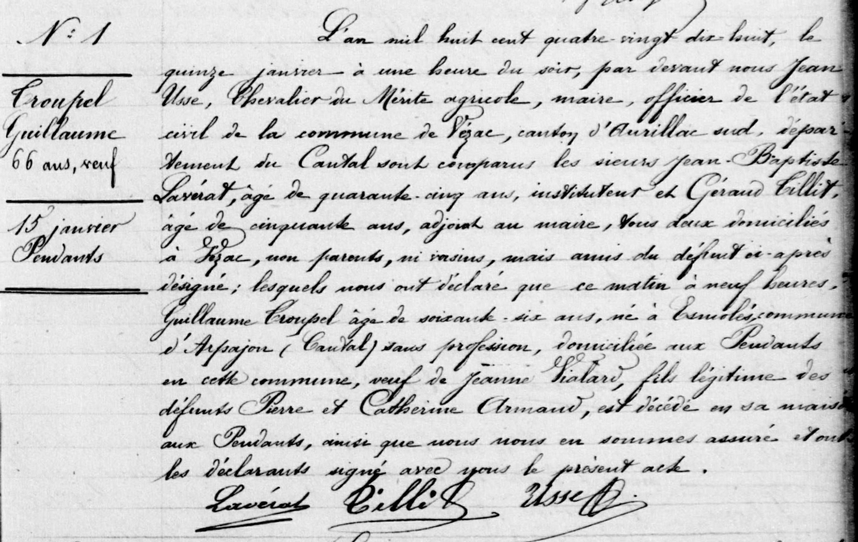 N° 1
Troupel
Guillaume
66 ans, veuf
15 janvier
Pendants
L'an mil huit cent quatre-vingt dix-huit, le
quinze janvier à une heure du soir, par devant nous Jean
Usse, Chevalier du Mérite agricole, maire, officier de l'état
civil de la commune de Vézac, canton d'Aurillac sud, dépar-
tement du Cantal sont comparus les sieurs Jean-Baptiste
Lavérat, âgé de quarante-cinq ans, instituteur et Géraud Tillit,
âgé de cinquante ans, adjoint au maire, tous deux domiciliés
à Vézac, non parents, ni voisins, mais amis du défunt ci-après
désigné; lesquels nous ont déclaré que ce matin à neuf heures,
Guillaume Troupel âgé de soixante-six ans, né à Esmolés, commune
d'Arpajon (Cantal) sans profession, domiciliée aux Pendants
en cette commune, veuf de Jeanne Vialard, fils légitime des
défunts Pierre et Catherine Armand, est décédé en sa maison
aux Pendants, ainsi que nous nous en sommes assuré et ont
les déclarants signé avec nous le présent acte.
Lavérat Tillit Usse